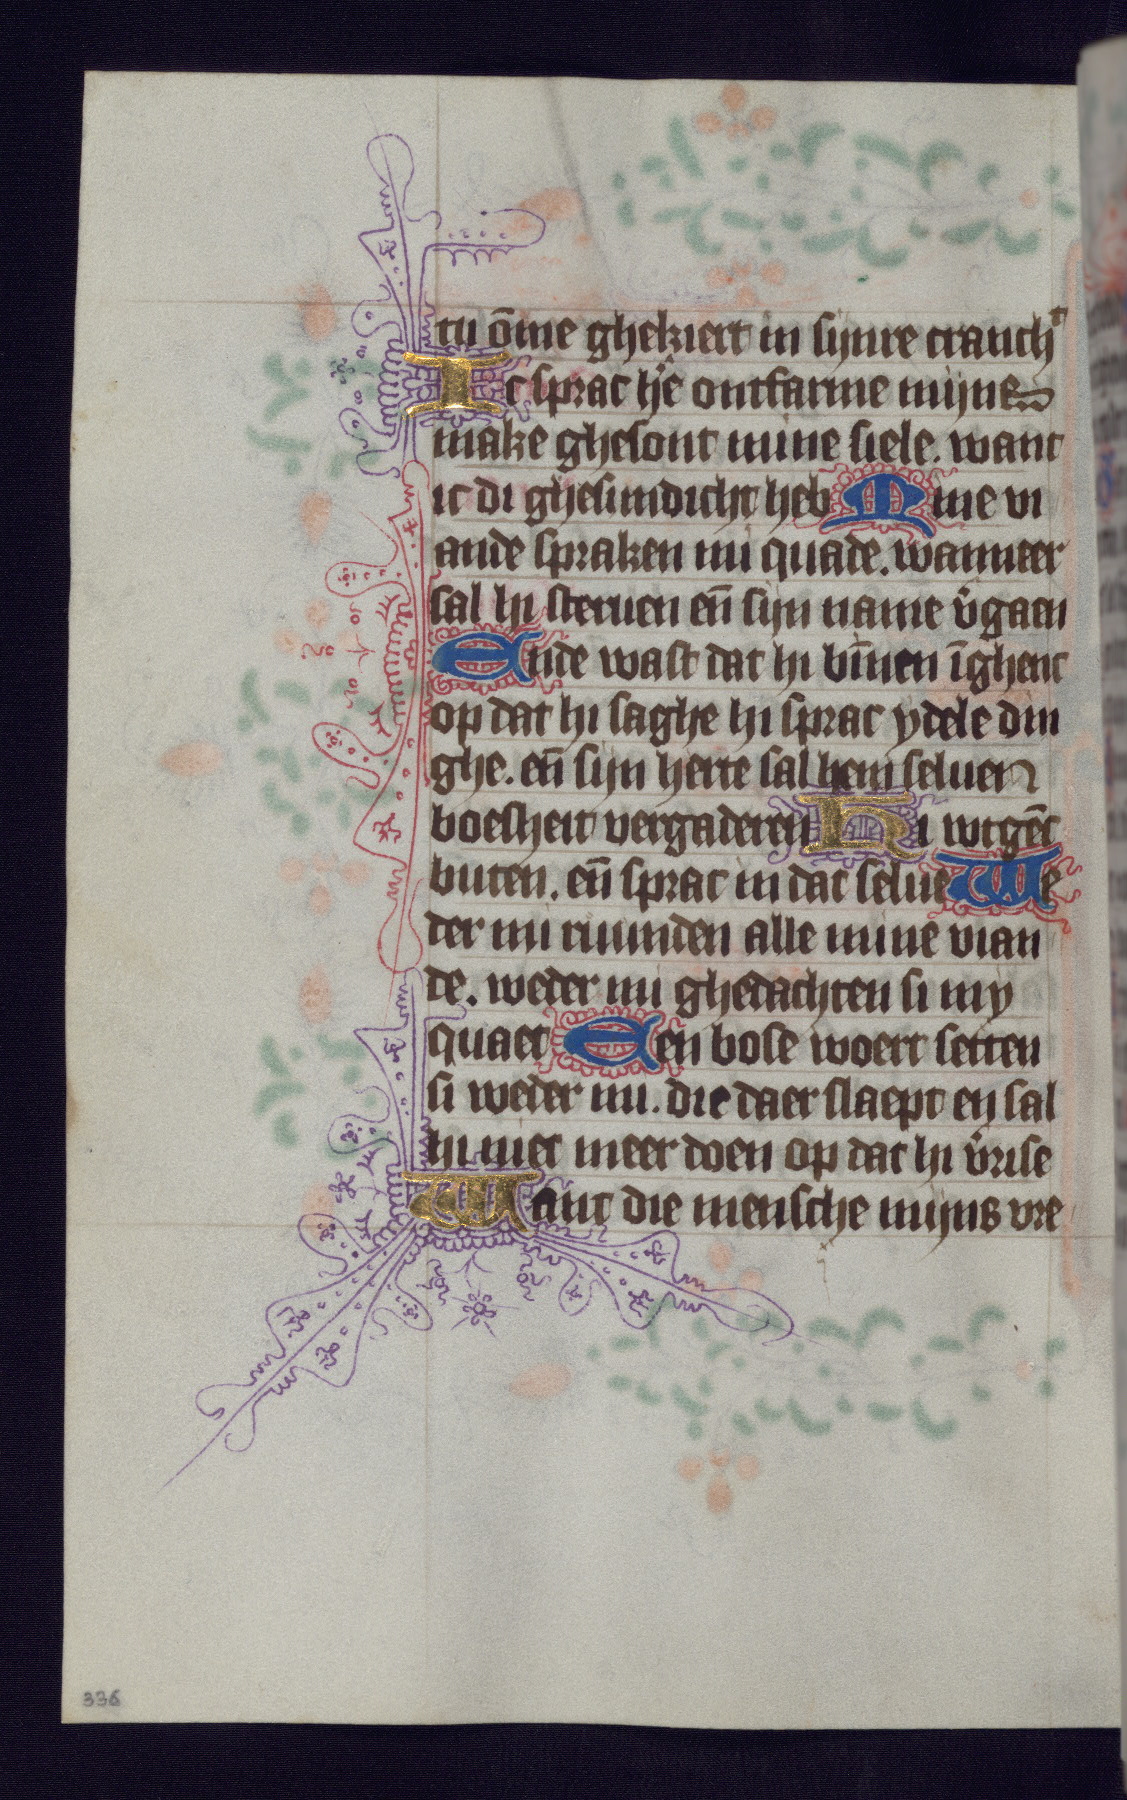 tu ōme ghekiert in synre cranchᵗ
Ic sprac hr̄e ontfarme mijnes
make ghesont mine siele. want
ic di ghesundicht heb Mine vi
ande spraken mi quade. wanneer
sal hi steruen en̄ sijn name v̄gaen
Ende wast dat hi bīnen īghenc
op dat hi saghe hi sprac ydele din
ghe. en̄ sijn herte sal hem seluen
boesheit vergaderen Hi wtgēc
buten. en̄ sprac in dat selue We
der mi ruunden alle mine vian
de. weder mi ghedachten si my
quaet Een bose woert setten
si weder mi. die daer slaept en sal
hi niet meer doen op dat hi v̄rise
Want die mensche mijns vre
336